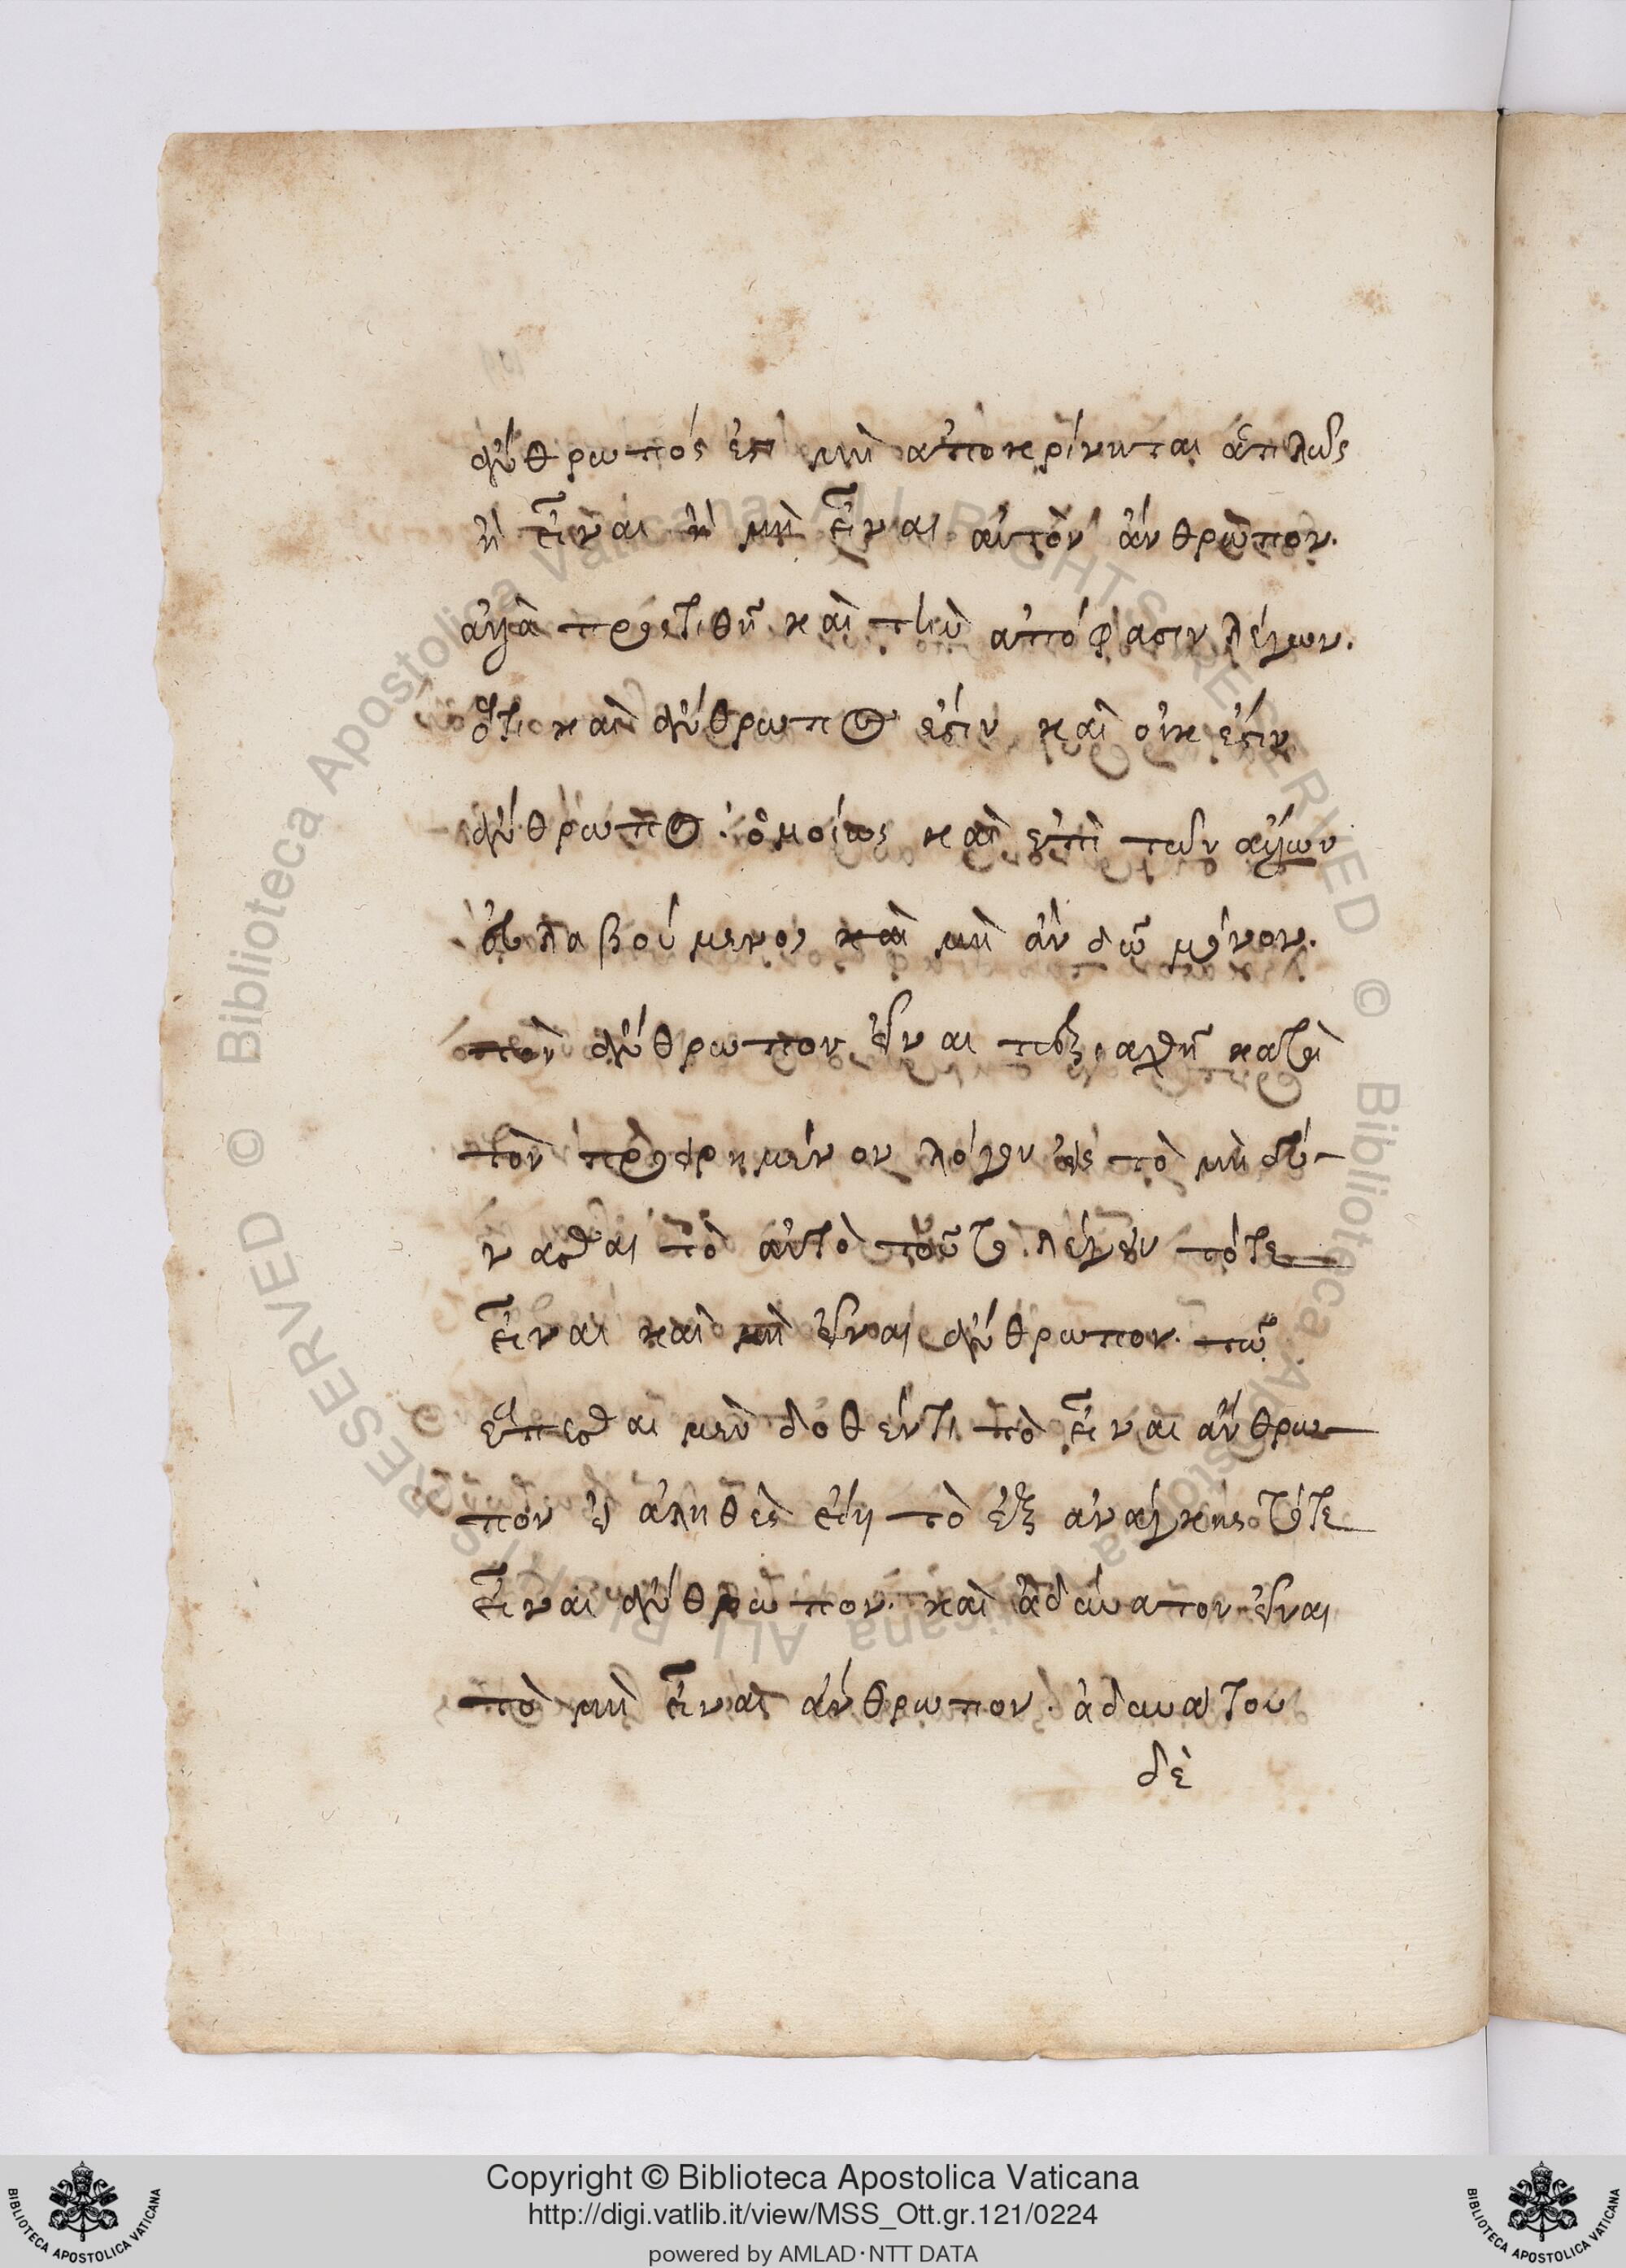 ἄνθρωπός ἐστι μὴ ἀποκρίνηται ἁπλῶς
ἢ εἶναι ἢ μὴ εἶναι αὐτὸν ἄνθρωπον.
ἀλλὰ προστιθῇ καὶ τὴν ἀπόφασιν λέγων.
ὅτι καὶ ἄνθρωπος ἐστίν καὶ οὐκ ἐστίν
ἄνθρωπος. ὁμοίως καὶ ἐπὶ τῶν ἄλλων
εὐλαβούμενος καὶ μὴ ἂν δῷ μόνον.
τὸν ἄνθρωπον εἶναι ταραχθῇ κατὰ
τὸν προειρημένον λόγον εἰς τὸ μὴ δύ-
νασθαι τὸ αὐτὸ τοῦτο λέγειν τότε
εἶναι καὶ μὴ εἶναι ἄνθρωπον. τῷ
ἕπεσθαι μὲν δοθέντι τὸ εἶναι ἄνθρω-
πον εἰ ἀληθὲς εἴη τὸ ἐξ ἀνάγκης τότε
εἶναι ἄνθρωπον. καὶ ἀδύνατον εἶναι
τὸ μὴ εἶναι ἄνθρωπον. ἀδυνάτου
δὲ
Copyright © Biblioteca Apostolica Vaticana
http://digi.vatlib.it/view/MSS_Ott.gr.121/0224
powered by AMLAD·NTT DATA
BIBLIOTECA APOSTOLICA VATICANA
BIBLIOTECA APOSTOLICA VATICANA